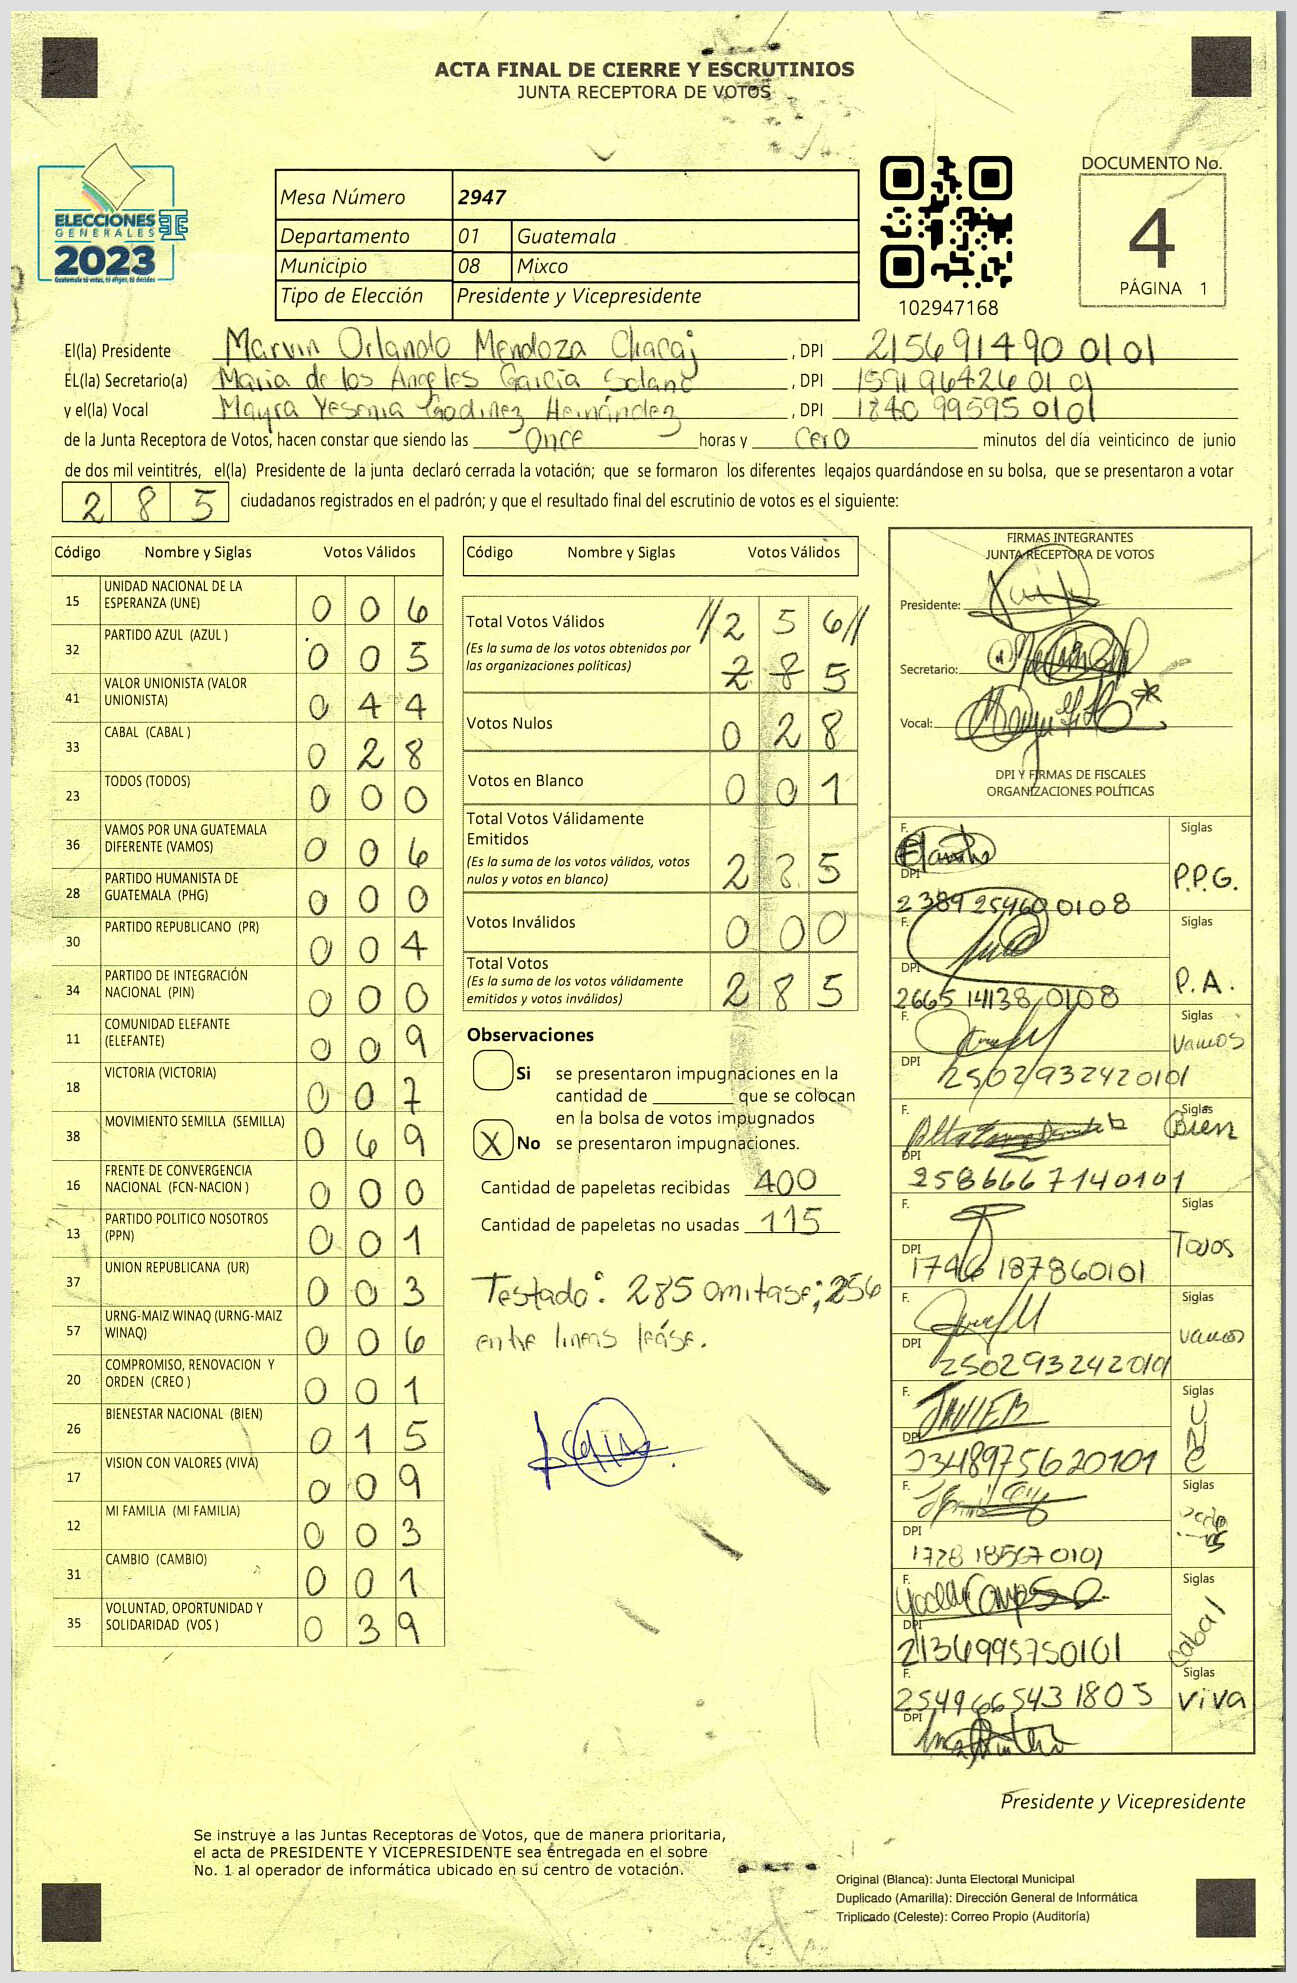 ACTA FINAL DE CIERRE Y ESCRUTINIOS
JUNTA RECEPTORA DE VOTOS
ELECCIONES
GENERALES
2023
Guatemala tú votas, tú eliges, tú decides
Mesa Número 2947
Departamento 01 Guatemala
Municipio 08 Mixco
Tipo de Elección Presidente y Vicepresidente
102947168
DOCUMENTO No.
4
PÁGINA 1
El(la) Presidente Marvin Orlando Mendoza Chacaj, DPI 215691490 0101
EL(la) Secretario(a) Maria de los Angeles Garcia Solano, DPI 159196426 01 01
y el(la) Vocal Mayra Yesenia Godinez Hernández, DPI 1840 99595 0101
de la Junta Receptora de Votos, hacen constar que siendo las Once horas y Cero minutos del día veinticinco de junio
de dos mil veintitrés, el(la) Presidente de la junta declaró cerrada la votación; que se formaron los diferentes legajos guardándose en su bolsa, que se presentaron a votar
2 8 5 ciudadanos registrados en el padrón; y que el resultado final del escrutinio de votos es el siguiente:
Código Nombre y Siglas Votos Válidos
15 UNIDAD NACIONAL DE LA ESPERANZA (UNE) 0 0 6
32 PARTIDO AZUL (AZUL ) 0 0 5
41 VALOR UNIONISTA (VALOR UNIONISTA) 0 4 4
33 CABAL (CABAL ) 0 2 8
23 TODOS (TODOS) 0 0 0
36 VAMOS POR UNA GUATEMALA DIFERENTE (VAMOS) 0 0 6
28 PARTIDO HUMANISTA DE GUATEMALA (PHG) 0 0 0
30 PARTIDO REPUBLICANO (PR) 0 0 4
34 PARTIDO DE INTEGRACIÓN NACIONAL (PIN) 0 0 0
11 COMUNIDAD ELEFANTE (ELEFANTE) 0 0 9
18 VICTORIA (VICTORIA) 0 0 7
38 MOVIMIENTO SEMILLA (SEMILLA) 0 6 9
16 FRENTE DE CONVERGENCIA NACIONAL (FCN-NACION ) 0 0 0
13 PARTIDO POLITICO NOSOTROS (PPN) 0 0 1
37 UNION REPUBLICANA (UR) 0 0 3
57 URNG-MAIZ WINAQ (URNG-MAIZ WINAQ) 0 0 6
20 COMPROMISO, RENOVACION Y ORDEN (CREO ) 0 0 1
26 BIENESTAR NACIONAL (BIEN) 0 1 5
17 VISION CON VALORES (VIVA) 0 0 9
12 MI FAMILIA (MI FAMILIA) 0 0 3
31 CAMBIO (CAMBIO) 0 0 1
35 VOLUNTAD, OPORTUNIDAD Y SOLIDARIDAD (VOS ) 0 3 9
Código Nombre y Siglas Votos Válidos
Total Votos Válidos //2 5 6//
(Es la suma de los votos obtenidos por las organizaciones políticas) 2 8 5
Votos Nulos 0 2 8
Votos en Blanco 0 0 1
Total Votos Válidamente Emitidos
(Es la suma de los votos válidos, votos nulos y votos en blanco) 2 8 5
Votos Inválidos 0 0 0
Total Votos
(Es la suma de los votos válidamente emitidos y votos inválidos) 2 8 5
Observaciones
Si se presentaron impugnaciones en la
cantidad de ________ que se colocan
en la bolsa de votos impugnados
X No se presentaron impugnaciones.
Cantidad de papeletas recibidas 400
Cantidad de papeletas no usadas 115
Testado: 285 omitase; 256
entre lineas leáse.
FIRMAS INTEGRANTES
JUNTA RECEPTORA DE VOTOS
Presidente:
Secretario:
Vocal:
DPI Y FIRMAS DE FISCALES
ORGANIZACIONES POLÍTICAS
F. Siglas
P.P.G.
DPI
2389 25460 0108
F. Siglas
P.A.
DPI
2665 14138 0108
F. Siglas
Vamos
DPI 2502932420101
F. Siglas
Bien
DPI
2586667140101
F. Siglas
Todos
DPI
1746 187860101
F. Siglas
vamos
DPI
2502932420101
F. JAVIER Siglas
DPI
2348975620101
F. Siglas
DPI
1728 185670101
F. Siglas
Cabal
DPI
2136995750101
F. Siglas
254966543 1805 viva
DPI
Presidente y Vicepresidente
Se instruye a las Juntas Receptoras de Votos, que de manera prioritaria,
el acta de PRESIDENTE Y VICEPRESIDENTE sea entregada en el sobre
No. 1 al operador de informática ubicado en su centro de votación.
Original (Blanca): Junta Electoral Municipal
Duplicado (Amarilla): Dirección General de Informática
Triplicado (Celeste): Correo Propio (Auditoría)